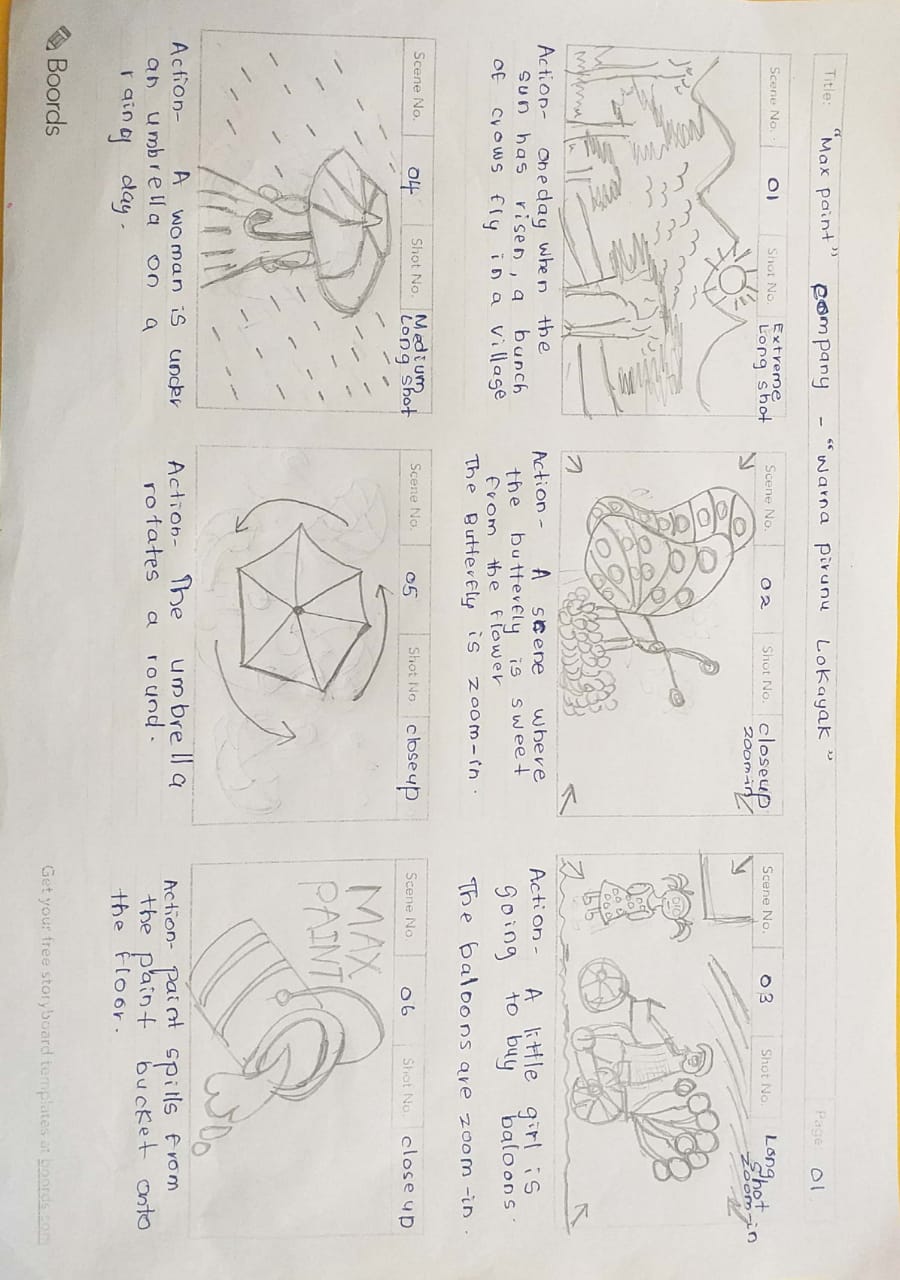 Title: "Max paint" company - "Warna pirunu Lokayak" Page 01
Scene No. 01 Shot No. Extreme Long shot
Action- One day when the
sun has risen, a bunch
of crows fly in a village
Scene No. 02 Shot No. closeup zoom-in
Action- A scene where
the butterfly is sweet
from the flower
The Butterfly is zoom-in.
Scene No. 03 Shot No. Long shot zoom-in
Action- A little girl is
going to buy baloons.
The baloons are zoom-in.
Scene No. 04 Shot No. Medium Long shot
Action- A woman is under
an umbrella on a
rainy day.
Scene No. 05 Shot No. closeup
Action- The umbrella
rotates a round.
Scene No. 06 Shot No. closeup
MAX
PAINT
Action- paint spills from
the paint bucket onto
the floor.
Boords
Get your free storyboard templates at boords.com